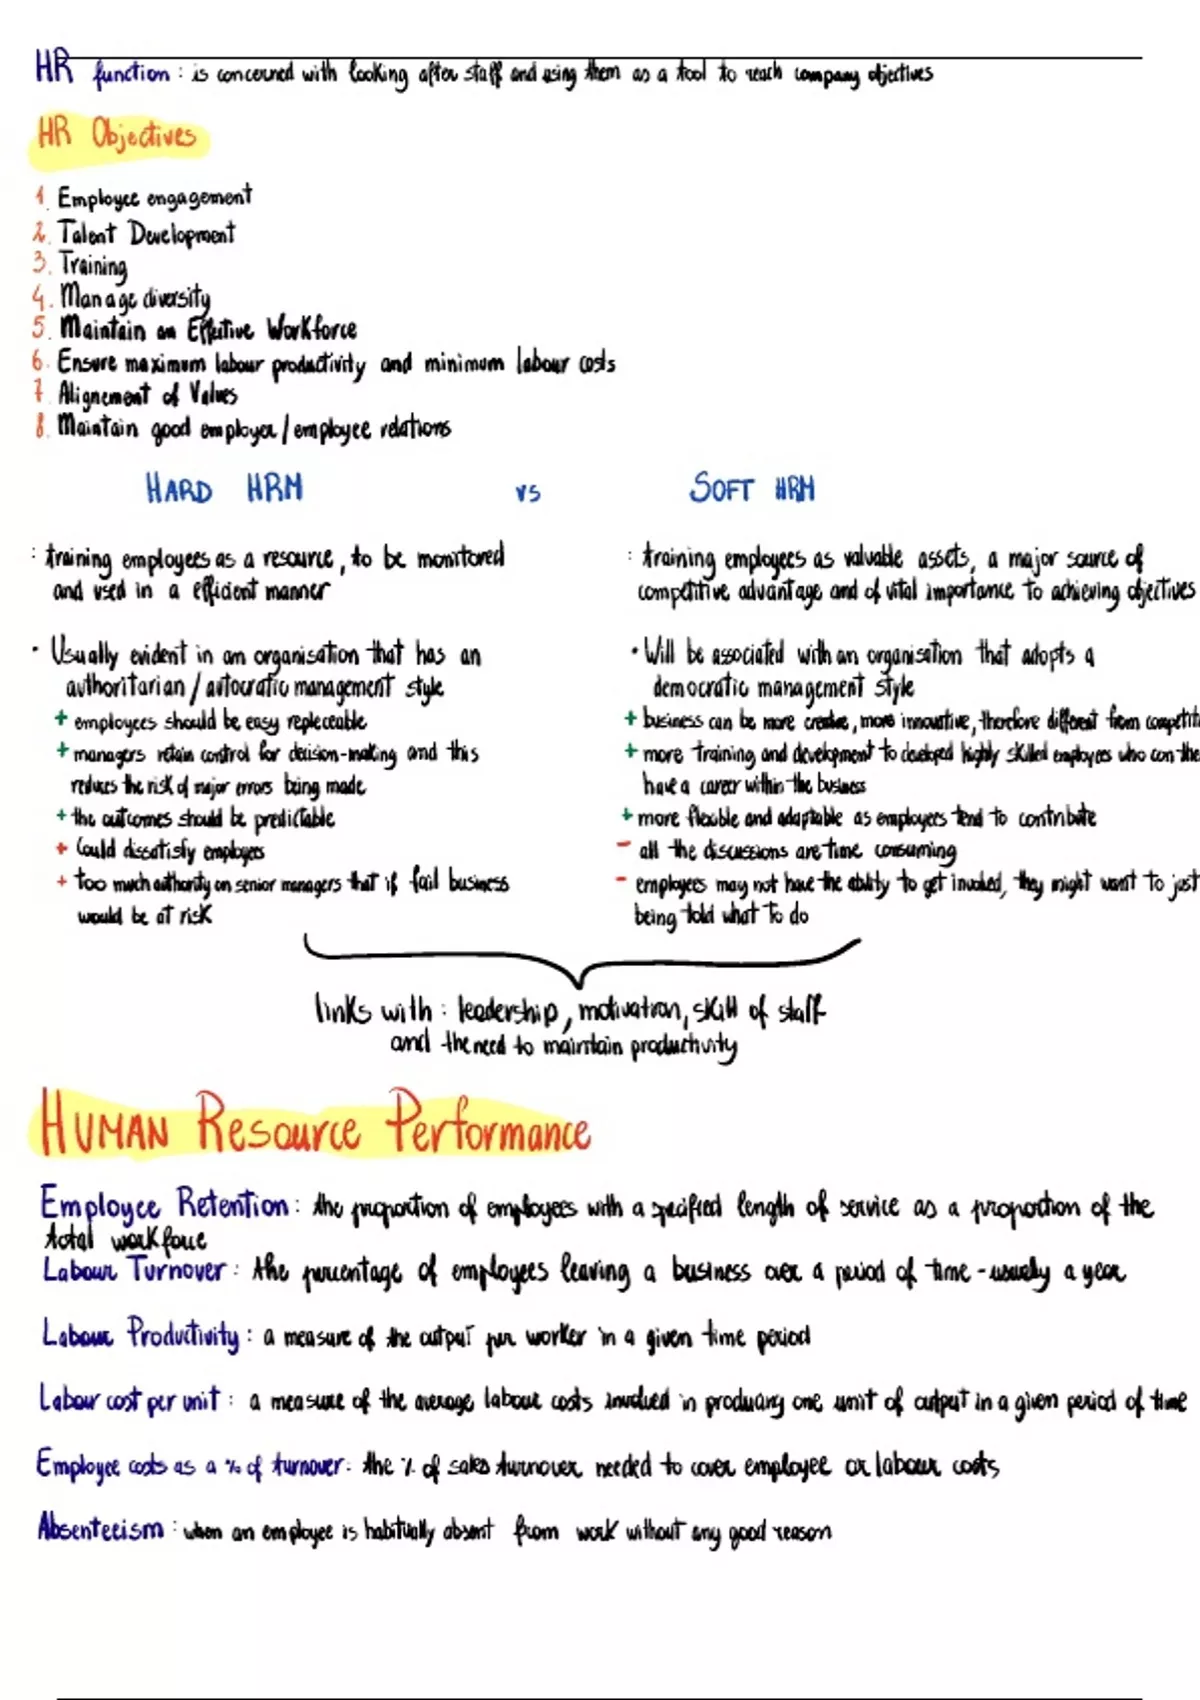 HR function : is concerned with looking after staff and using them as a tool to reach company objectives
HR Objectives
1. Employee engagement
2. Talent Development
3. Training
4. Manage diversity
5. Maintain an Effective Workforce
6. Ensure maximum labour productivity and minimum labour costs
7. Alignement of Values
8. Maintain good employer/employee relations
HARD HRM vs SOFT HRM
: training employees as a resource, to be monitored
and used in a efficient manner
· Usually evident in an organisation that has an
authoritarian / autocratic management style
+ employees should be easy repleceable
+ managers retain control for decision-making and this
reduces the risk of major errors being made
+ the outcomes should be predictable
+ Could dissatisfy employees
+ too much authority on senior managers that if fail business
would be at risk
: training employees as valuable assets, a major source of
competitive advantage and of vital importance to achieving objectives
· Will be associated with an organisation that adopts a
democratic management style
+ business can be more creative, more innovative, therefore different from competit
+ more training and development to developed highly skilled employees who can the
have a career within the business
+ more flexible and adaptable as employees tend to contribute
- all the discussions are time consuming
- employees may not have the ability to get involved, they might want to just
being told what to do
links with : leadership, motivation, skill of staff
and the need to maintain productivity
HUMAN Resource Performance
Employee Retention : the proportion of employees with a specified length of service as a proportion of the
total workforce
Labour Turnover : the percentage of employees leaving a business over a period of time - usually a year
Labour Productivity : a measure of the output per worker in a given time period
Labour cost per unit : a measure of the average labour costs involved in producing one unit of output in a given period of time
Employee costs as a % of turnover : the % of sales turnover needed to cover employee or labour costs
Absenteeism : when an employee is habitually absent from work without any good reason